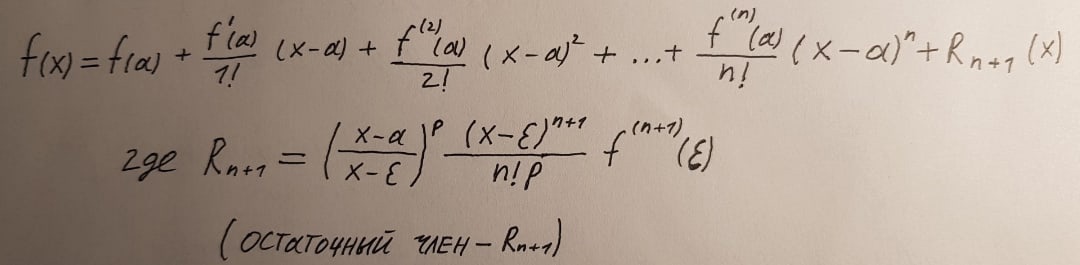 f(x) = f(a) + \frac{f'(a)}{1!} (x-a) + \frac{f^{(2)}(a)}{2!} (x-a)^2 + ... + \frac{f^{(n)}(a)}{n!} (x-a)^n + R_{n+1} (x)
где R_{n+1} = \left(\frac{x-a}{x-ε}\right)^p \frac{(x-ε)^{n+1}}{n!p} f^{(n+1)}(ε)
(остаточный член – R_{n+1})